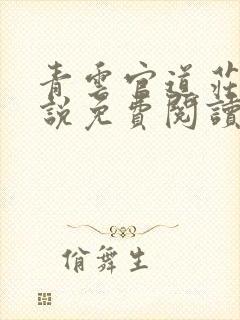 青雲官道莊
說免費閱讀
俏舞生